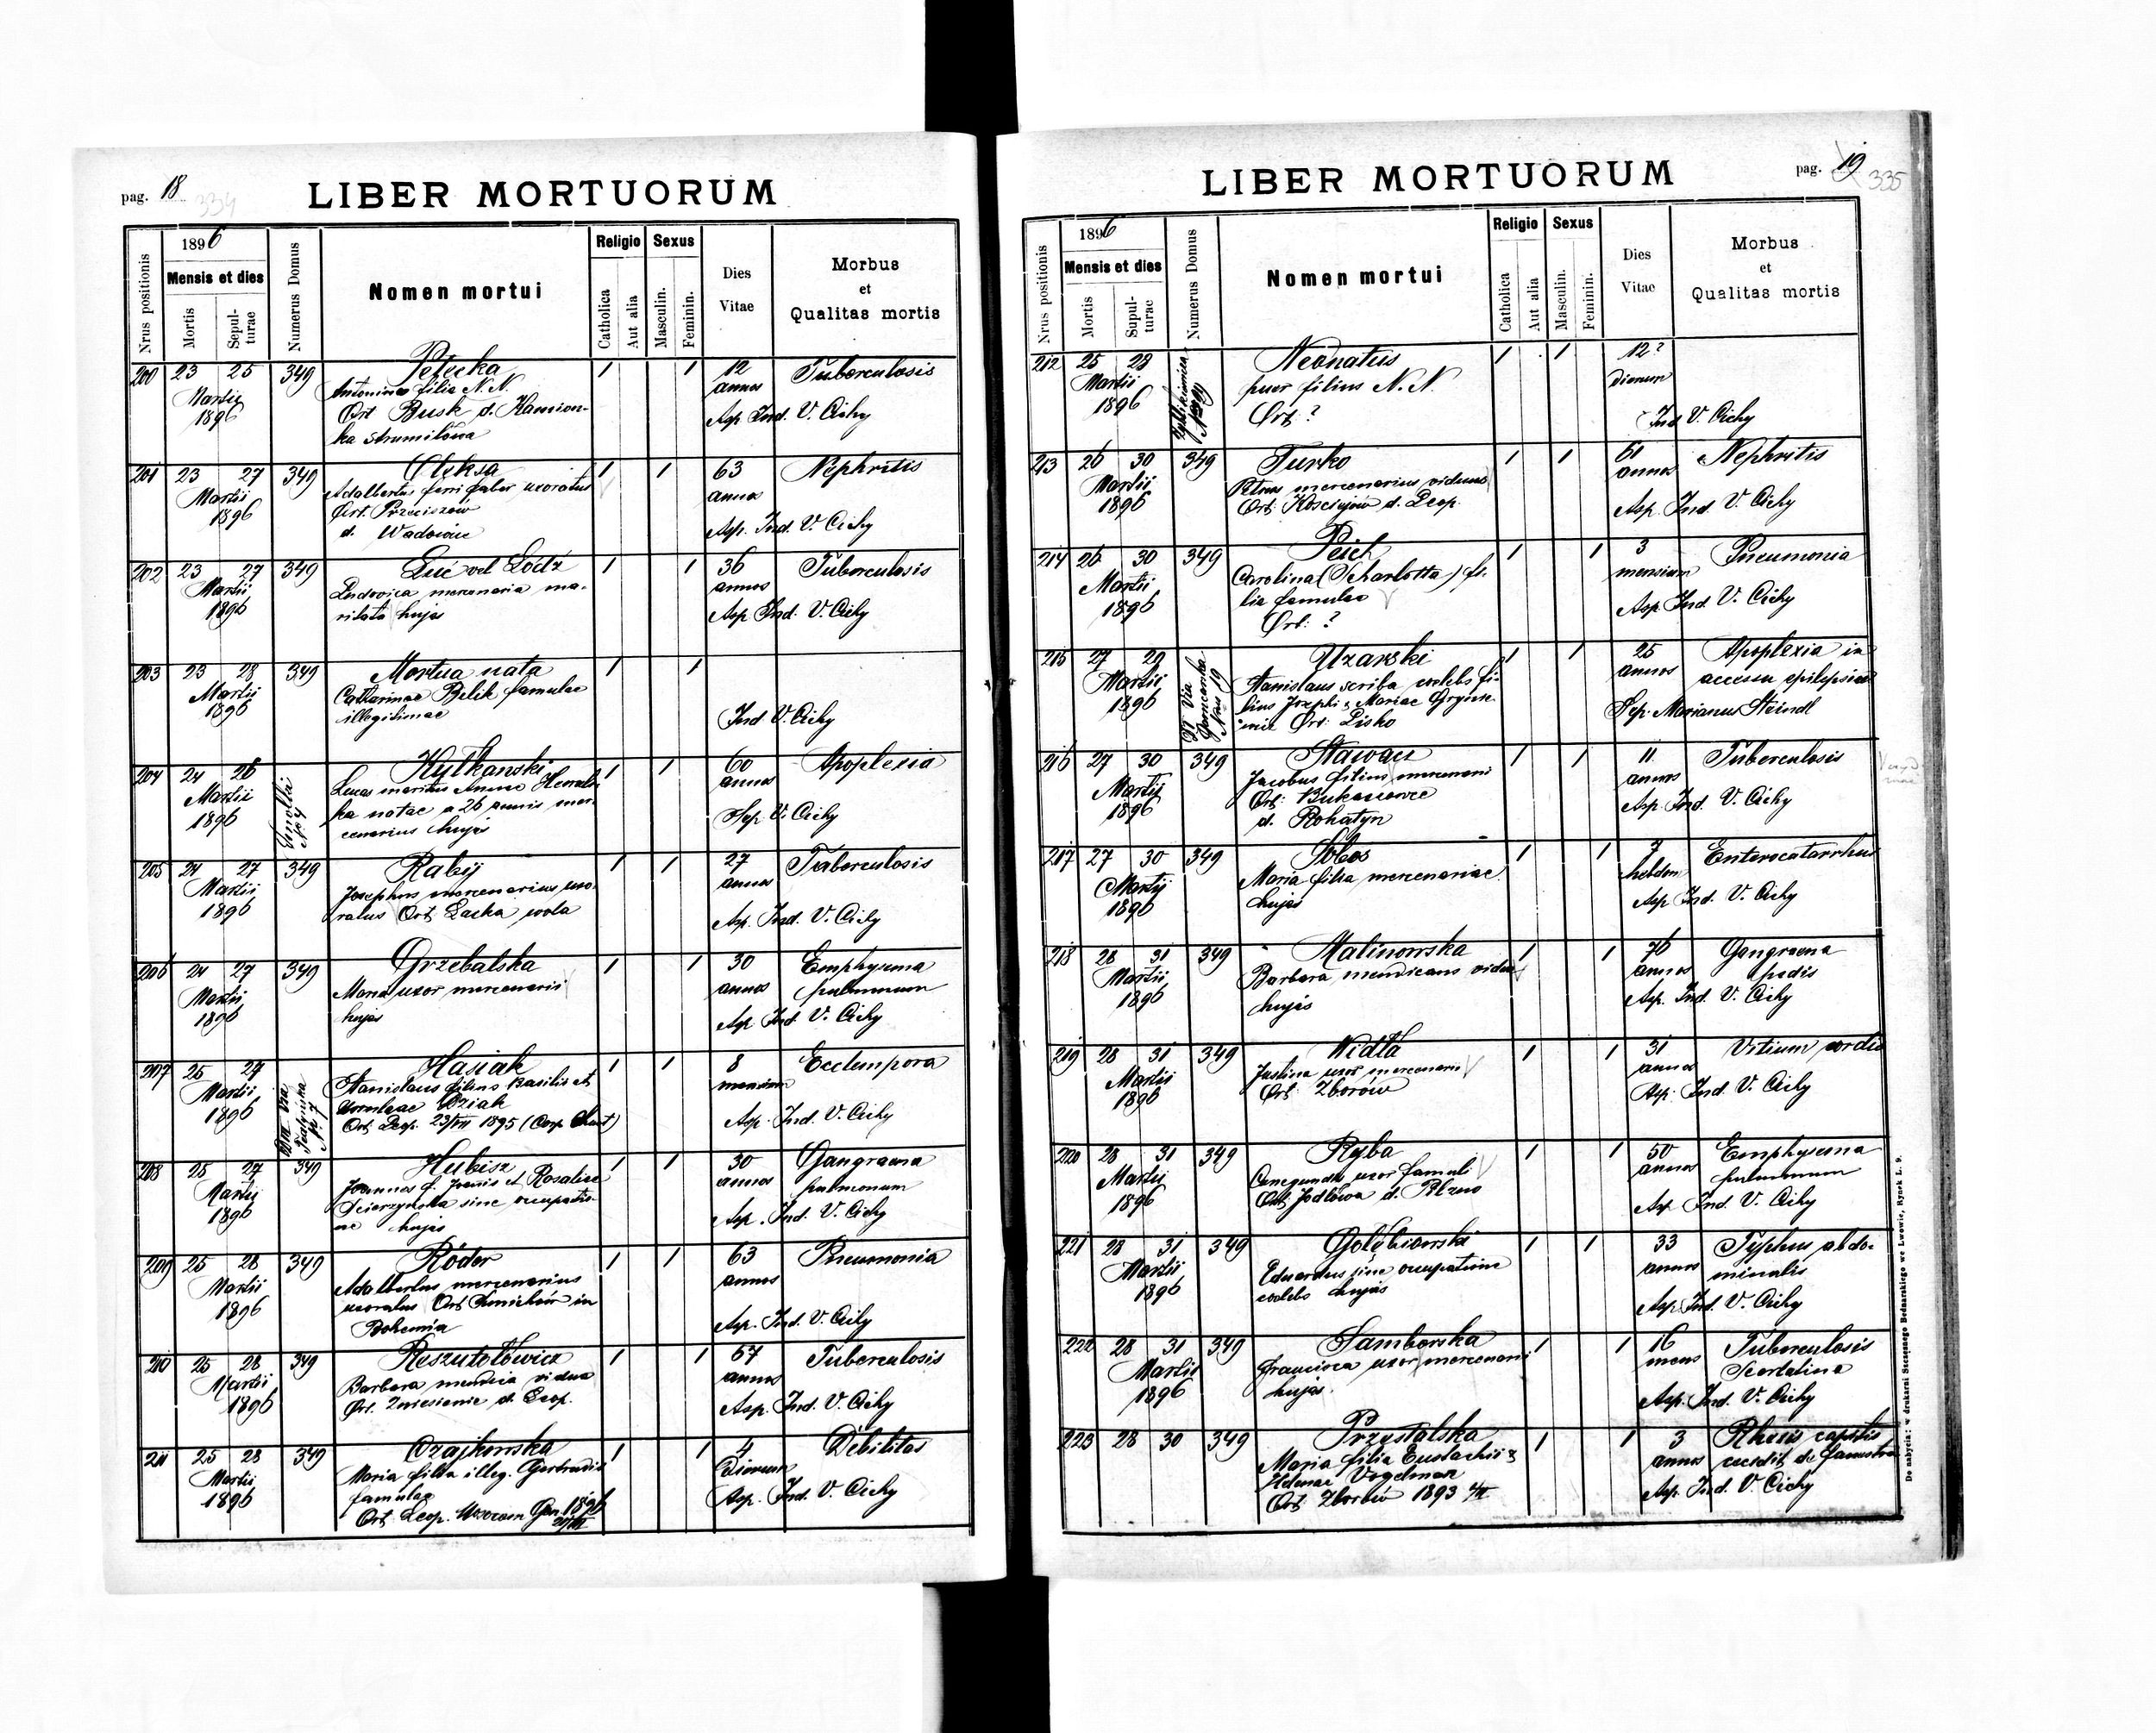 pag. 18
334
LIBER MORTUORUM
Nrus positionis
1896
Mensis et dies
Mortis
Sepul-
turae
Numerus Domus
Nomen mortui
Religio
Catholica
Aut alia
Sexus
Masculin.
Feminin.
Dies
Vitae
Morbus
et
Qualitas mortis
200 23 25 349 Petecka 1 1 12 Tuberculosis
Martii Antonina filia N. N. annos
1896 Ort Busk d. Kamion- Asp Ind. V. Cichy
ka strumilowa
201 23 27 349 Oleksa 1 1 63 Nephritis
Martii Adalbertus ferri faber uxoratus annos
1896 Ort. Przeciszów
d. Wadowice Asp. Ind. V. Cichy
202 23 27 349 Łuć vel Łódź 1 1 36 Tuberculosis
Martii Ludovica mercenaria ma- annos
1896 ritata hujas Asp Ind. V. Cichy
203 23 28 349 Mortua nata 1 1
Martii Catharinae Belik famulae
1896 illegitimae Ind V. Cichy
204 24 26 Kutkanski 1 1 60 Apoplexia
Martii Lucas maritus Annae annos
1896 ka natae a 26 annis mer- Sep. V. Cichy
cenarius hujas
205 24 27 349 Rabij 1 1 27 Tuberculosis
Martii Josephus mercenarius uxo- annos
1896 ratus Ort. Lacka wola Asp. Ind. V. Cichy
206 24 27 349 Grzebalska 1 1 30 Emphysema
Martii Maria uxor mercenarii annos pulmonum
1896 hujas Asp Ind. V. Cichy
207 25 27 Hasiak 1 1 8 Ecclempora
Martii Stanislaus filius Basilii et mensium
1896
Ort. Leop. 23/VII 1895 Asp. Ind. V. Cichy
208 25 27 349 Hubisz 1 1 30 Gangraena
Martii Joannes f. Joanis et Rosaliae annos pulmonum
1896 sine occupatio-
ne hujas Asp. Ind. V. Cichy
209 25 28 349 Ródor 1 1 63 Pneumonia
Martii Adalbertus mercenarius annos
1896 uxoratus Ort in
Bohemia Asp. Ind. V. Cichy
210 25 28 349 Reszutolowicz 1 1 67 Tuberculosis
Martii Barbara mendica vidua annos
1896 Ort. Zniesienie d. Leop. Asp. Ind. V. Cichy
211 25 28 349 Czajkowska 1 1 4 Debilitas
Martii Maria filia illeg. Gertrudis dierum
1896 famulae Asp. Ind. V. Cichy
Ort. Leop. 1896
pag. 19
335
LIBER MORTUORUM
Nrus positionis
1896
Mensis et dies
Mortis
Supul-
turae
Numerus Domus
Nomen mortui
Religio
Catholica
Aut alia
Sexus
Masculin.
Feminin.
Dies
Vitae
Morbus
et
Qualitas mortis
212 25 28 Neonatus 1 1 12?
Martii puer filius N. N. dierum
1896 Ort. ? Ind V. Cichy
213 26 30 349 Turko 1 1 61 Nephritis
Martii Petrus mercenarius viduus annos
1896 Ort. Kościejów d. Leop. Asp. Ind V. Cichy
214 26 30 349 Peich 1 1 3 Pneumonia
Martii Carolina (Scharlotta) fi- mensium
1896 lia famulae Asp Ind V. Cichy
Ort: ?
215 27 29 Uzarski 1 1 25 Apoplexia in
Martii Stanislaus scriba coelebs fi- annos accessu epilepsiae
1896 lius Josephi & Mariae
Ort: Lisko Sep. Marianus Steindl
216 27 30 349 Stawarz 1 1 11 Tuberculosis
Martii Jacobus filius mercenarii annos
1896 Ort: Bukaczowce Asp. Ind. V. Cichy
d. Rohatyn
217 27 30 349 1 1 7 Enterocatarrhus
Martii Maria filia mercenariae hebdom
1896 hujas Asp Ind. V. Cichy
218 28 31 349 Malinowska 1 1 76 Gangraena
Martii Barbara mendicans vidua annos pedis
1896 hujas Asp. Ind V. Cichy
219 28 31 349 Widła 1 1 31 Vitium cordis
Martii Justina uxor mercenarii annos
1896 Ort. Zborów Asp. Ind V. Cichy
220 28 31 349 Ryba 1 1 50 Emphysema
Martii Cunegunda uxor famuli annos pulmonum
1896 Ort. Jodłowa d. Pilzno Asp. Ind V. Cichy
221 28 31 349 Gołębiowski 1 1 33 Typhus abdo-
Martii Eduardus sine occupatione annos minalis
1896 coelebs hujas Asp. Ind V. Cichy
222 28 31 349 Samborska 1 1 16 Tuberculosis
Martii Francisca uxor mercenarii mens
1896 hujas. Asp. Ind V. Cichy
223 28 30 349 Przestalska 1 1 3 capitis
Maria filia Eustachii & annos cecidit de fenestra
Helenae Vogelman
Ort. Zborów 1893 Asp. Ind V. Cichy
Do nabycia: w drukarni Szczęsnego Bednarskiego we Lwowie, Rynek L. 9.